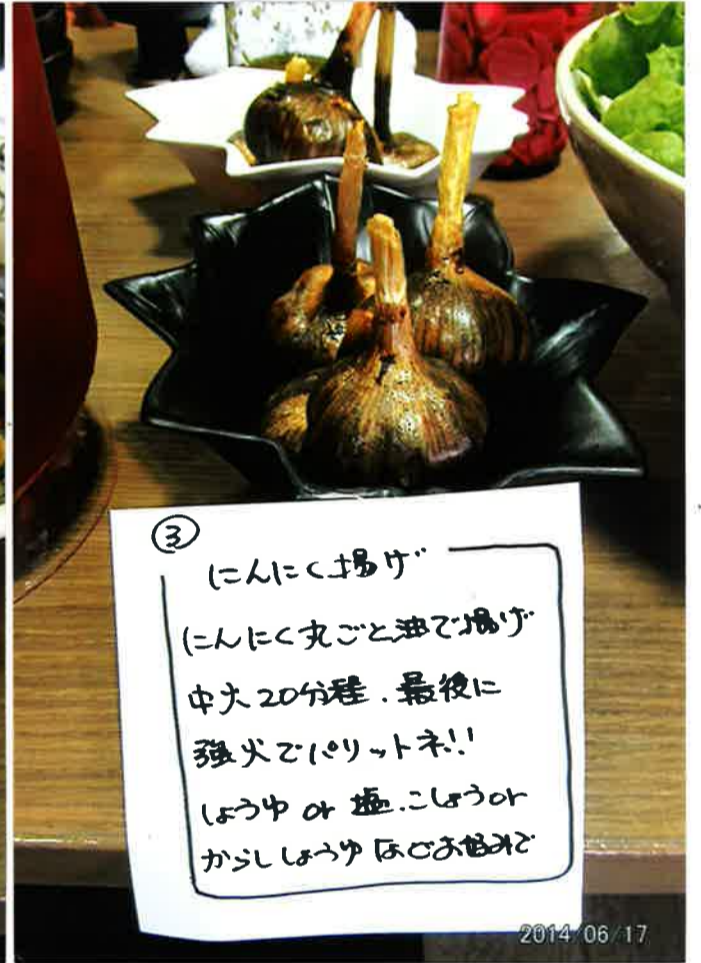 ③
にんにく揚げ
にんにく丸ごと油で揚げ
中火20分程.最後に
強火でパリットネ!!
しょうゆ or 塩.こしょうor
からししょうゆなどお好みで
2014/06/17